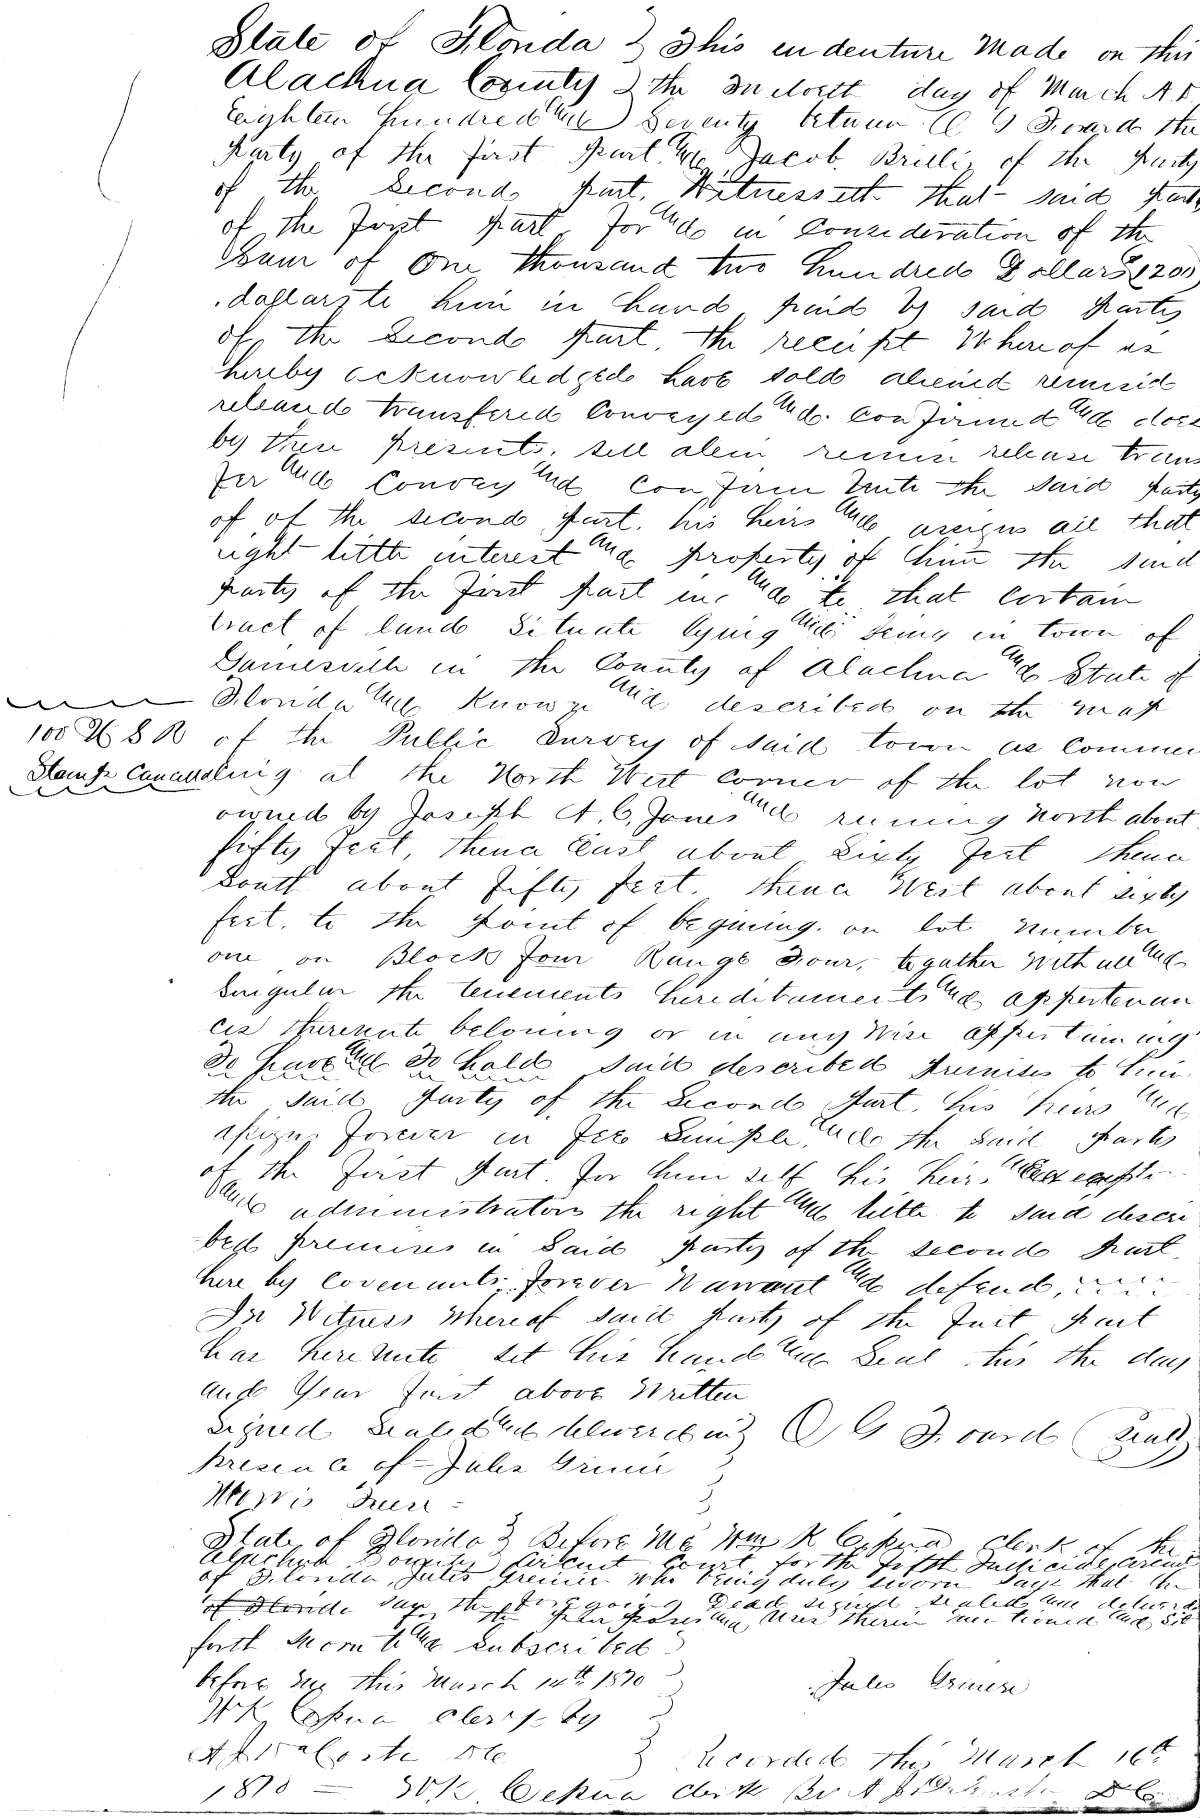 State of Florida } This endenture Made on this
Alachua County } the Twelvth day of March A.D.
Eighteen hundred and Seventy between O G Foward the
Party of the first part and Jacob of the party
of the Second part, Witnesseth that said party
of the first part for and in Consideration of the
Sum of One thousand two hundred Dollars (1200)
dollars to him in hand paid by said party
of the Second part, the receipt Whereof is
hereby acknowledged have sold aliened remised
released transfered Conveyed and Confirmed and does
by these presents, sell alein remise release trans
fer and Convey and confirm unto the said party
of of the second part, his heirs and assigns all that
right tittle interest and property of him the said
party of the first part in, and to that certain
tract of land Situate lying and being in town of
Gainesville in the County of Alachua and State of
Florida and Known and described on the map
100 U S R
of the Public Survey of said town as commen
Stamp Cancelled
cing at the North West corner of the lot now
owned by Joseph A. C. Jones and runing North about
fifty feet, thence East about Sixty feet thence
South about fifty feet, thence West about sixty
feet, to the point of begining, on lot number
one on Block four Range Four, togather with all and
Singular the tenements hereditaments and appertenan
ces thereunto beloning or in any wise appertaining
To have and To hold said described premises to him
the said party of the Second part, his heirs and
assigns forever in Fee Simple, and the said party
of the first part for him self his heirs
and administrators the right and tittle to said descri
bed premises in Said party of the second part,
here by covenants, forever Warrant and defend,
In Witness Whereof said party of the first part
has here unto set his hand and Seal this the day
and Year first above Written
Signed Sealed and delivered in } O G Foward (Seal)
presence of = Jules
Morris
State of Florida } Before Me Wm K Cessna clerk of the
Alachua County Circuit Court for the fifth Judicial Circuit
of Florida, Jules who being duly sworn says that the
of Florida say the foregoing Dead signed sealed and delivered
the purposes and uses therein mentioned and set
forth Sworn to and subscribed
before me this March 14th 1870
Jules
W K Cessna clerk by
D C
Recorded this March 16th
1870 = W.K. Cessna clerk By A J D C